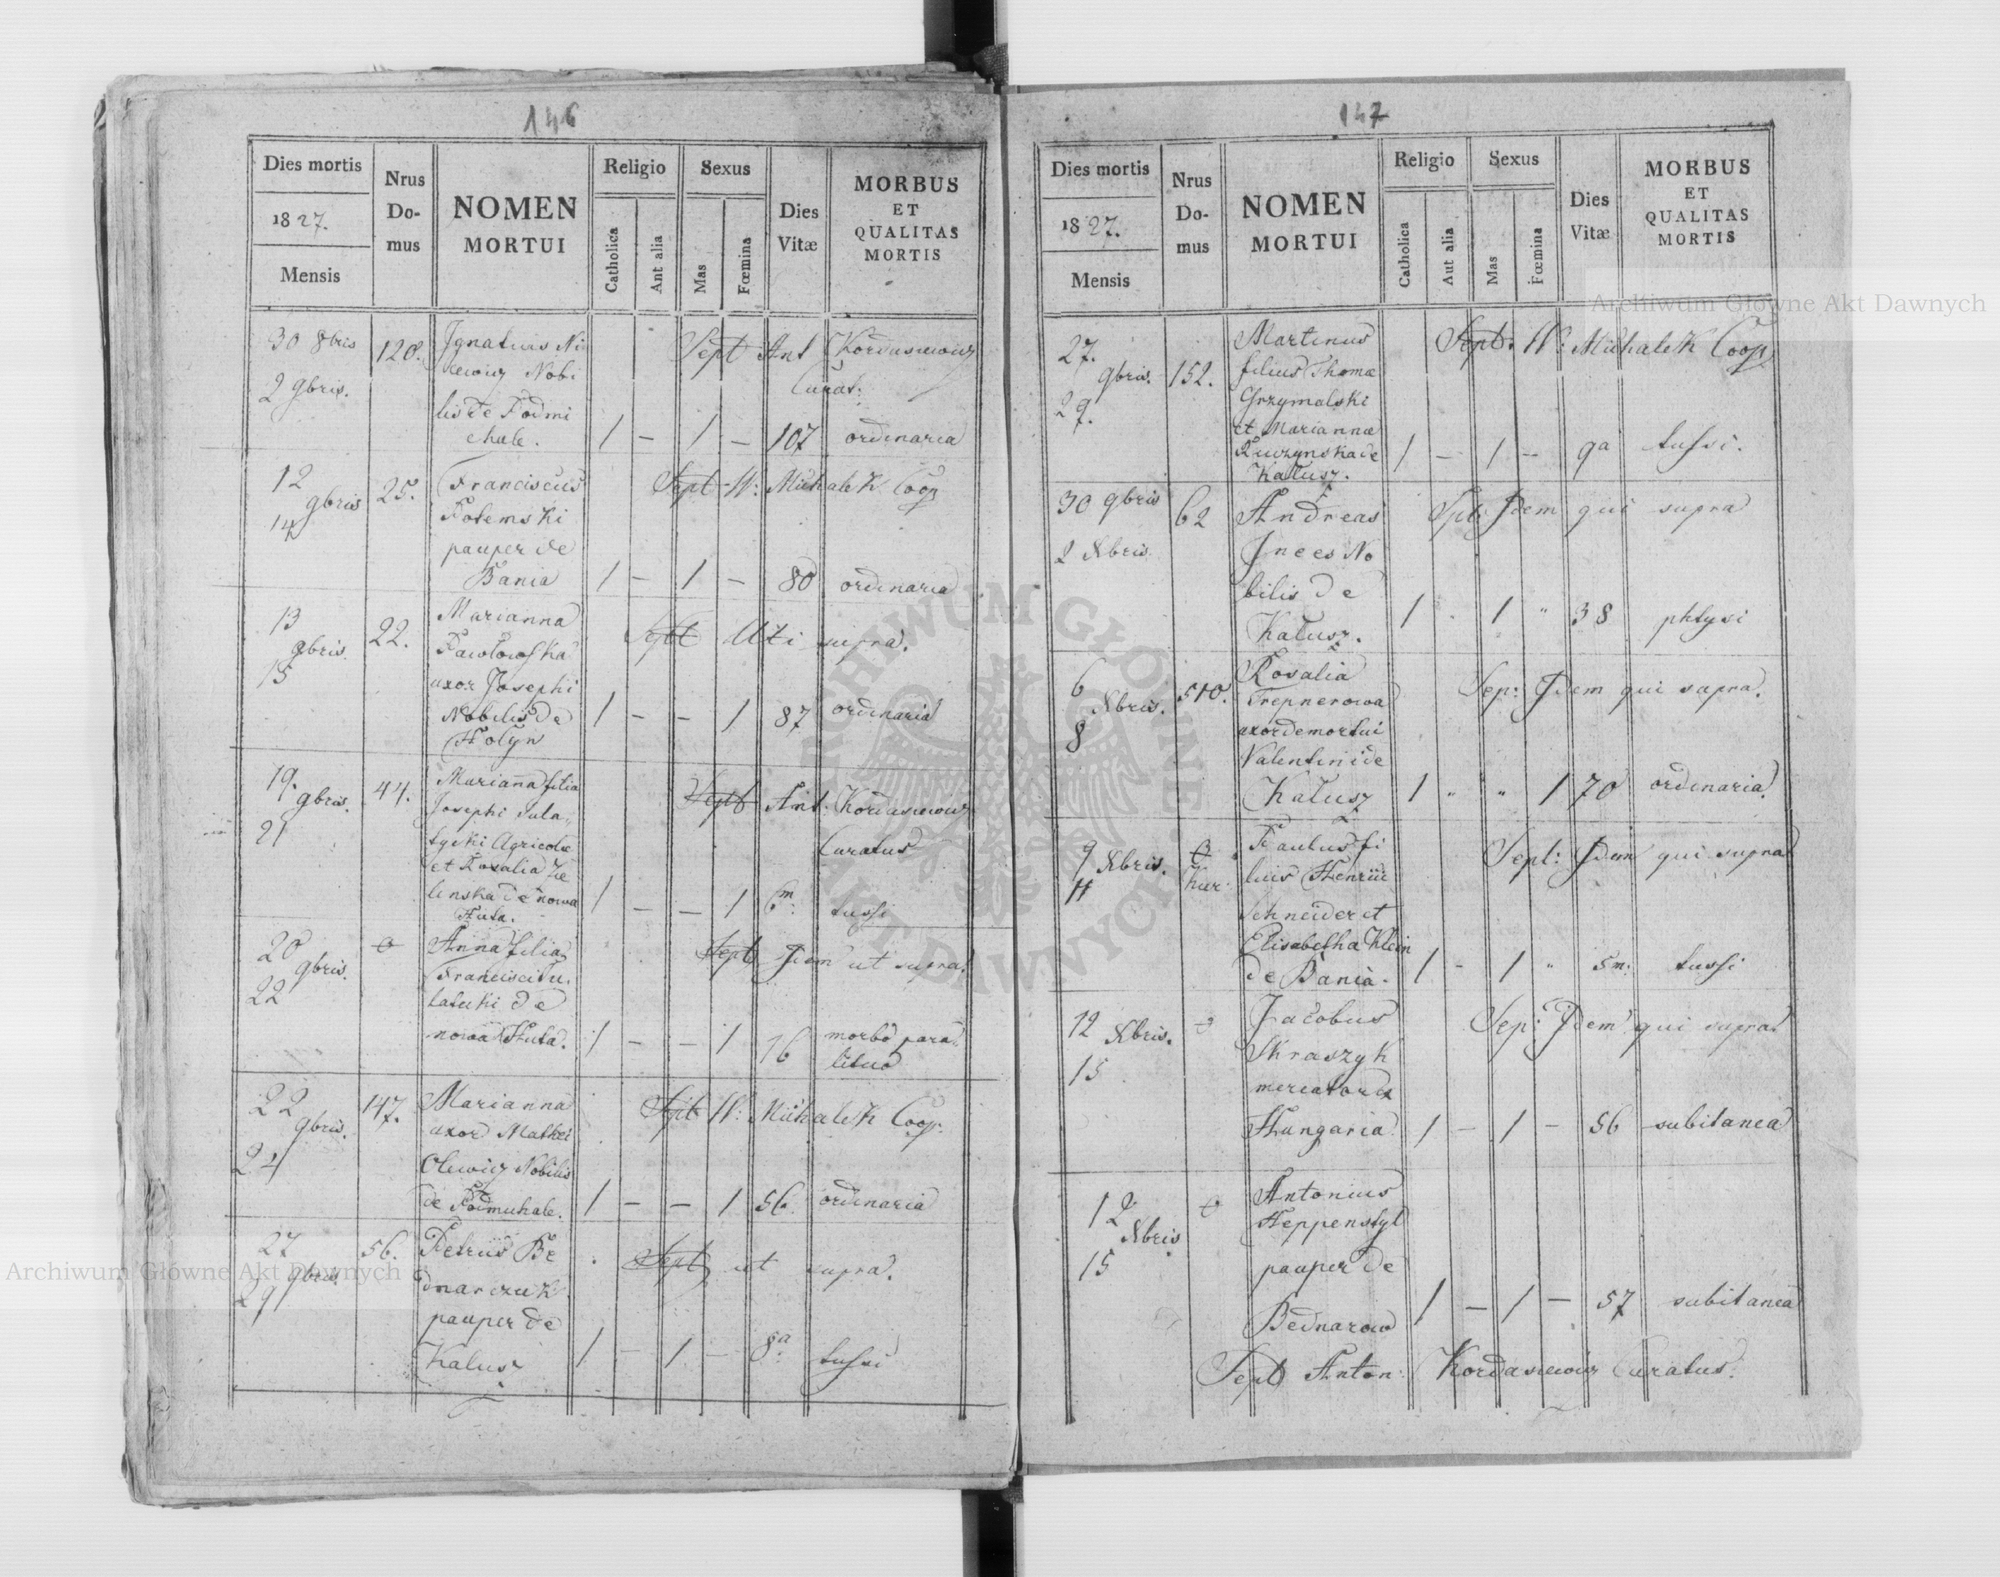 146
Dies mortis
1827.
Mensis
Nrus
Do-
mus
NOMEN
MORTUI
Religio
Catholica
Ant alia
Sexus
Mas
Fœmina
Dies
Vitæ
MORBUS
ET
QUALITAS
MORTIS
30 8bris
2 9bris.
120.
Ignatius Ni
ewicz Nobi
lis de Podmi
chale.
Sept Ant Kordasiewicz
Curat:
1 – 1 – 107 ordinaria
12
9bris
14
25.
Franciscus
Potemski
pauper de
Bania
Sept W: Michalek Coop
1 – 1 – 80 ordinaria
13
9bris.
15
22.
Marianna
Pawłowska
uxor Josephi
Nobilis de
Hołyn
Sept Uti supra.
1 – – 1 87 ordinaria
19.
9bris.
21
44.
Marianna filia
Josephi Sula„
tycki Agricolæ
et Rosalia Ze
linska de nowa
Huta.
Sept Ant: Kordasiewicz
Curatus
1 – – 1 6m: tussi
20
9bris.
22
Anna filia
Francisci
de
nowa Huta.
Sept Idem ut supra.
1 – – 1 76 morbo para„
litus
22
9bris.
24
147.
Marianna
uxor Mathei
Olewicz Nobilis
de Podmichale.
Sept W: Michalek Coop.
1 – – 1 56. ordinaria
27
9bris.
29
56.
Petrus Be
dnarczuk
pauper de
Kalusz
Sept ut supra.
1 – 1 – 8a tussi
147
Dies mortis
1827.
Mensis
Nrus
Do-
mus
NOMEN
MORTUI
Religio
Catholica
Aut alia
Sexus
Mas
Fœmina
Dies
Vitæ
MORBUS
ET
QUALITAS
MORTIS
27.
9bris.
29.
152.
Martinus
filius Thomæ
Grzymalski
et Mariannæ
de
Kałusz.
Sept. W: Michalek Coop
1 – 1 – 9a tussi.
30 9bris
2 Xbris
62
Andreas
Jnees No
bilis de
Kałusz.
Spt: Idem qui supra
1 . 1 " 38 phtysi
6
Xbris.
8
510.
Rosalia
Trepnerowa
uxor demortui
Valentini de
Kałusz
Sep: Idem qui supra.
1 " " 1 70 ordinaria.
9
Xbris.
11
Paulus fi
lius Henrici
Schneider et
Elisabetha Klein
de Bania.
Sept: Idem qui supra
1 – 1 " 5m: tussi
12
Xbris.
15
Jacobus
Skraszyk
mercator ex
Hungaria.
Sep: Idem qui supra
1 – 1 – 56 subitanea
12
Xbris
15
Antonius
Heppenstyl
pauper de
Bednarow
1 – 1 – 57 subitanea
Sept Anton: Kordasiewicz Curatus.
Archiwum Główne Akt Dawnych
Archiwum Główne Akt Dawnych
ARCHIWUM GŁÓWNE AKT DAWNYCH